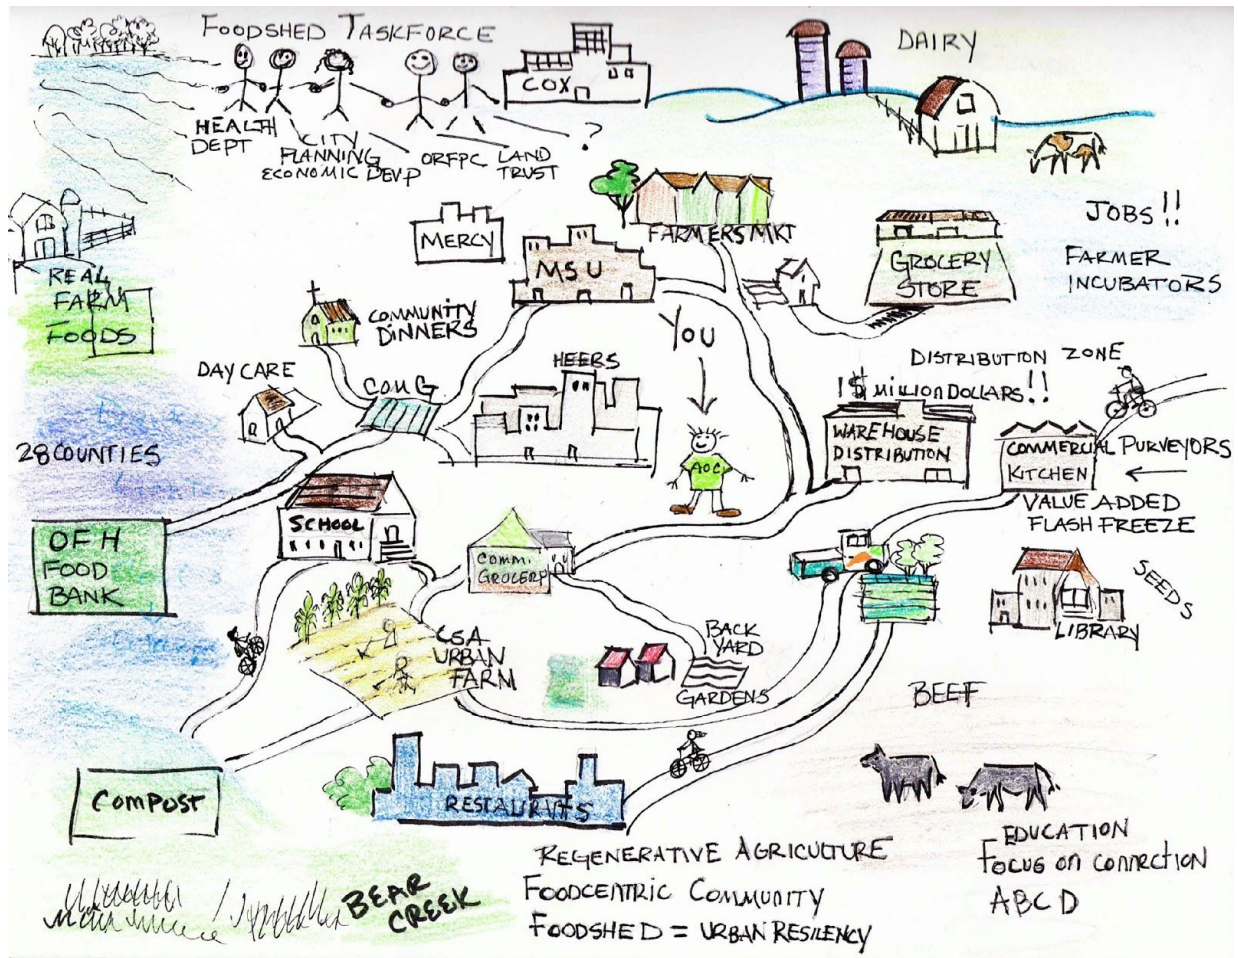 FOODSHED TASKFORCE
HEALTH
DEPT
CITY
PLANNING
ECONOMIC DEV.P
ORFPC
LAND
TRUST
?
COX
DAIRY
MERCY
MSU
FARMERS MKT
GROCERY
STORE
JOBS!!
FARMER
INCUBATORS
REAL
FARM
FOODS
COMMUNITY
DINNERS
DAY CARE
COMG
HEERS
YOU
AOC
DISTRIBUTION ZONE
1$ MILLION DOLLARS!!
WAREHOUSE
DISTRIBUTION
COMMERCIAL PURVEYORS
KITCHEN
VALUE ADDED
FLASH FREEZE
28 COUNTIES
OFH
FOOD
BANK
SCHOOL
COMM.
CSA
URBAN
FARM
BACK
YARD
GARDENS
LIBRARY
SEEDS
BEEF
COMPOST
RESTAURNTS
BEAR
CREEK
REGENERATIVE AGRICULTURE
FOODCENTRIC COMMUNITY
FOODSHED = URBAN RESILENCY
EDUCATION
FOCUS ON CONNECTION
ABCD